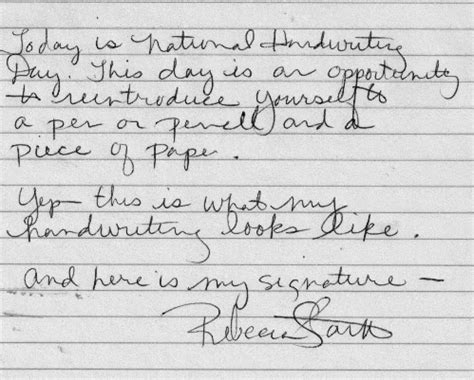 Today is National Handwriting
Day. This day is an opportunity
to reintroduce yourself to
a pen or pencil and a
piece of paper.
Yep - this is what my
handwriting looks like.
And here is my signature -
Rebecca